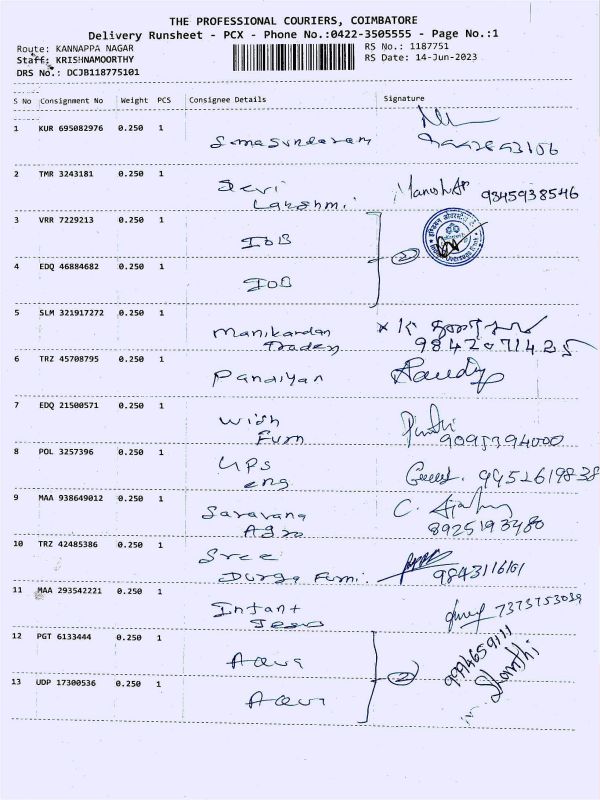 THE PROFESSIONAL COURIERS, COIMBATORE
Delivery Runsheet - PCX - Phone No.:0422-3505555 - Page No.:1
Route: KANNAPPA NAGAR RS No.: 1187751
Staff: KRISHNAMOORTHY RS Date: 14-Jun-2023
DRS No.: DCJB118775101
S No Consignment No Weight PCS Consignee Details Signature
1 KUR 695082976 0.250 1 Somasundaram
2 TMR 3243181 0.250 1 Devi
Lakshmi 9345938546
3 VRR 7229213 0.250 1 IOB 2
4 EDQ 46884682 0.250 1 IOB
5 SLM 321917272 0.250 1 Manikandan
Traders 9842071425
6 TRZ 45708795 0.250 1 Pandiyan
7 EDQ 21500571 0.250 1 Wish
Furn 9095394000
8 POL 3257396 0.250 1 UPS
eng 9952619838
9 MAA 938649012 0.250 1 Saravana
Agro 8925193480
10 TRZ 42485386 0.250 1 Sree
Durga Furni. 9843116161
11 MAA 293542221 0.250 1 Infant
Jesus 7373753039
12 PGT 6133444 0.250 1 Aavi 2 9994659111
13 UDP 17300536 0.250 1 Aavi